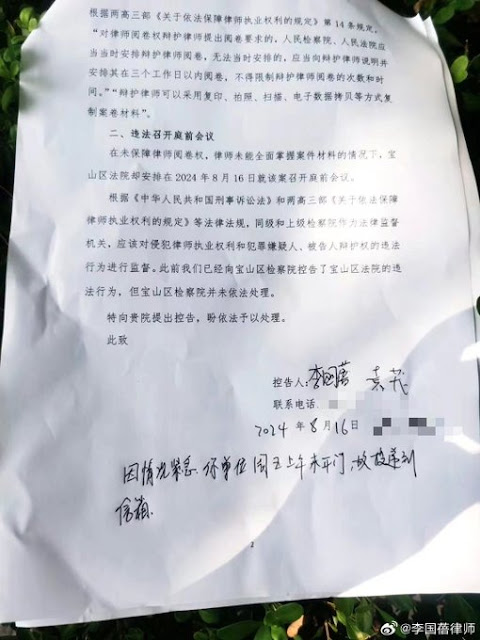 根据两高三部《关于依法保障律师执业权利的规定》第14条规定。
“对律师阅卷权辩护律师提出阅卷要求的，人民检察院、人民法院应
当当时安排辩护律师阅卷，无法当时安排的，应当向辩护律师说明并
安排其在三个工作日以内阅卷，不得限制辩护律师阅卷的次数和时
间。”“辩护律师可以采用复印、拍照、扫描、电子数据拷贝等方式复
制案卷材料”。
二、违法召开庭前会议
在未保障律师阅卷权，律师未能全面掌握案件材料的情况下，宝
山区法院却安排在2024年8月16日就该案召开庭前会议。
根据《中华人民共和国刑事诉讼法》和两高三部《关于依法保障
律师执业权利的规定》等法律法规，同级和上级检察院作为法律监督
机关，应该对侵犯律师执业权利和犯罪嫌疑人、被告人辩护权的违法
行为进行监督。此前我们已经向宝山区检察院控告了宝山区法院的违
法行为，但宝山区检察院并未依法处理。
特向贵院提出控告，盼依法予以处理。
此致
控告人：李国蓓 袁茂
联系电话：
2024年8月16日
因情况紧急，你单位周五上午未开门，故投递到
信箱。
2
@李国蓓律师